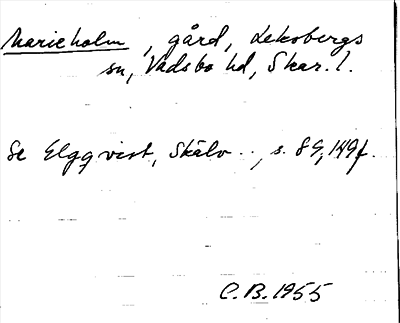 Marieholm, gård, Leksbergs
sn, Vadsbo hd, Skar. l.
Se Elgqvist, Skälv.., s. 89, 149f.
C.B. 1955